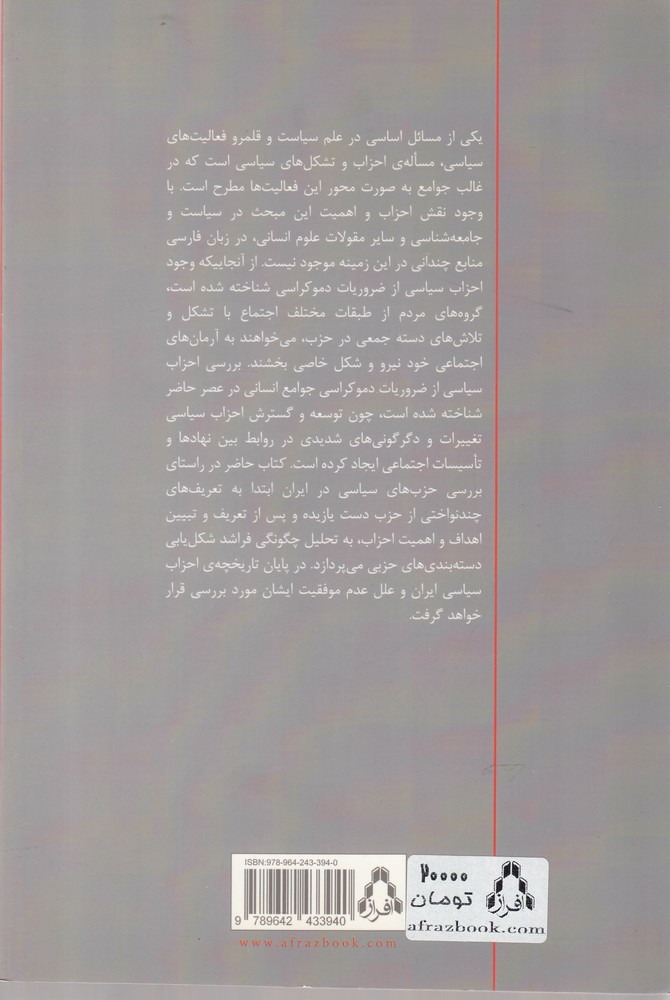 یکی از مسائل اساسی در علم سیاست و قلمرو فعالیت‌های
سیاسی، مسأله‌ی احزاب و تشکل‌های سیاسی است که در
غالب جوامع به صورت محور این فعالیت‌ها مطرح است. با
وجود نقش احزاب و اهمیت این مبحث در سیاست و
جامعه‌شناسی و سایر مقولات علوم انسانی، در زبان فارسی
منابع چندانی در این زمینه موجود نیست. از آنجاییکه وجود
احزاب سیاسی از ضروریات دموکراسی شناخته شده است،
گروه‌های مردم از طبقات مختلف اجتماع با تشکل و
تلاش‌های دسته جمعی در حزب، می‌خواهند به آرمان‌های
اجتماعی خود نیرو و شکل خاصی بخشند. بررسی احزاب
سیاسی از ضروریات دموکراسی جوامع انسانی در عصر حاضر
شناخته شده است، چون توسعه و گسترش احزاب سیاسی
تغییرات و دگرگونی‌های شدیدی در روابط بین نهادها و
تأسیسات اجتماعی ایجاد کرده است. کتاب حاضر در راستای
بررسی حزب‌های سیاسی در ایران ابتدا به تعریف‌های
چندنواختی از حزب دست یازیده و پس از تعریف و تبیین
اهداف و اهمیت احزاب، به تحلیل چگونگی فراشد شکل‌یابی
دسته‌بندی‌های حزبی می‌پردازد. در پایان تاریخچه‌ی احزاب
سیاسی ایران و علل عدم موفقیت ایشان مورد بررسی قرار
خواهد گرفت.
ISBN:978-964-243-394-0
9 789642 433940
افراز
www.afrazbook.com
۲۰۰۰۰
تومان
افراز
afrazbook.com